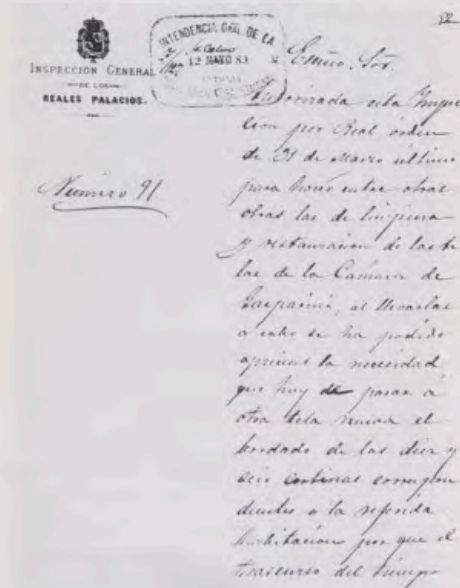 82
INTENDENCIA GRAL DE LA
12 MAYO 83
INSPECCION GENERAL
DE LOS
REALES PALACIOS.
Excmo. Sor.
Autorizada esta Inspec
cion por Real órden
de 31 de Marzo último
Número 91.
para hacer entre otras
obras las de limpieza
y restauracion de las te
las de la Cámara de
Gasparini, al llevarlas
a cabo se ha podido
apreciar la necesidad
que hay de pasar á
otra tela nueva el
bordado de las diez y
seis cortinas correspon
dientes a la referida
habitacion por que el
trascurso del tiempo